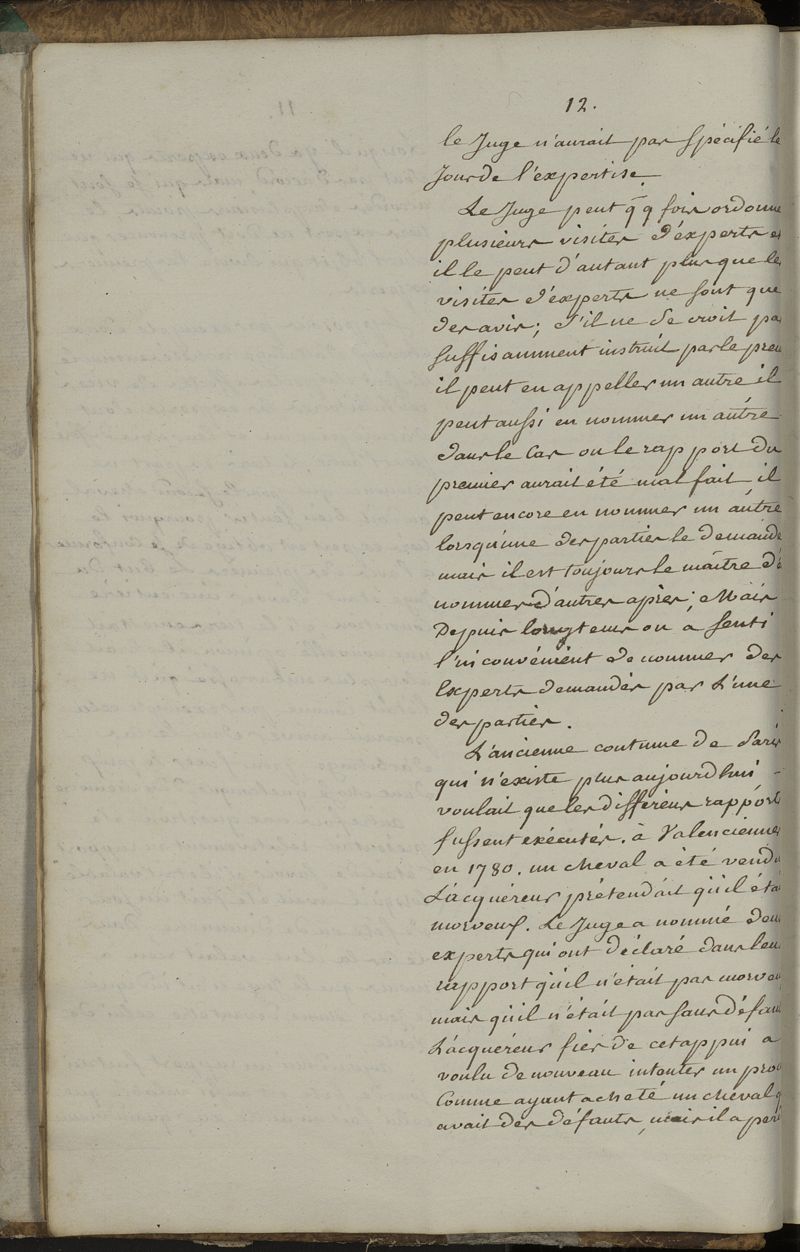 12.
le Juge n'aurait pas spécifié le
Jour de l'expertise
Le Juge peut qq fois ordonne
plusieurs visites d'éxperts et
il le peut d'autant plus que le
visites d'experts ne sont que
des avis; s'il ne se croit pa
suffisamment instruit par le prem
il peut en appeller un autre il
peut aussi en nommer un autre
dans le cas ou le rapport du
premier aurait été mal fait il
peut encore en nommer un autre
lorsqu'une des parties le demande
mais il est toujours le maitre de
nommer d'autres après; Mais
Depuis longtems on a senti
l'inconvénient de nommer des
Experts demandés par L'une
des parties.
L'ancienne coutume de Paris
qui n'existe plus aujourdhui -
voulait que les différens rapports
fussent exécutés. à Valenciennes
en 1780. un cheval a été vendu
L'acquéreur prétendait qu'il éta
morveux. Le Juge a nommé deu
experts qui ont déclaré dans leu
rapport qu'il n'était pas morveu
mais qu'il n'était pas sans défau
L'acquéreur fier de cet appui a
voulu de nouveau intenter un pro
Comme ayant acheté un cheval q
avait des défauts, mais il a per